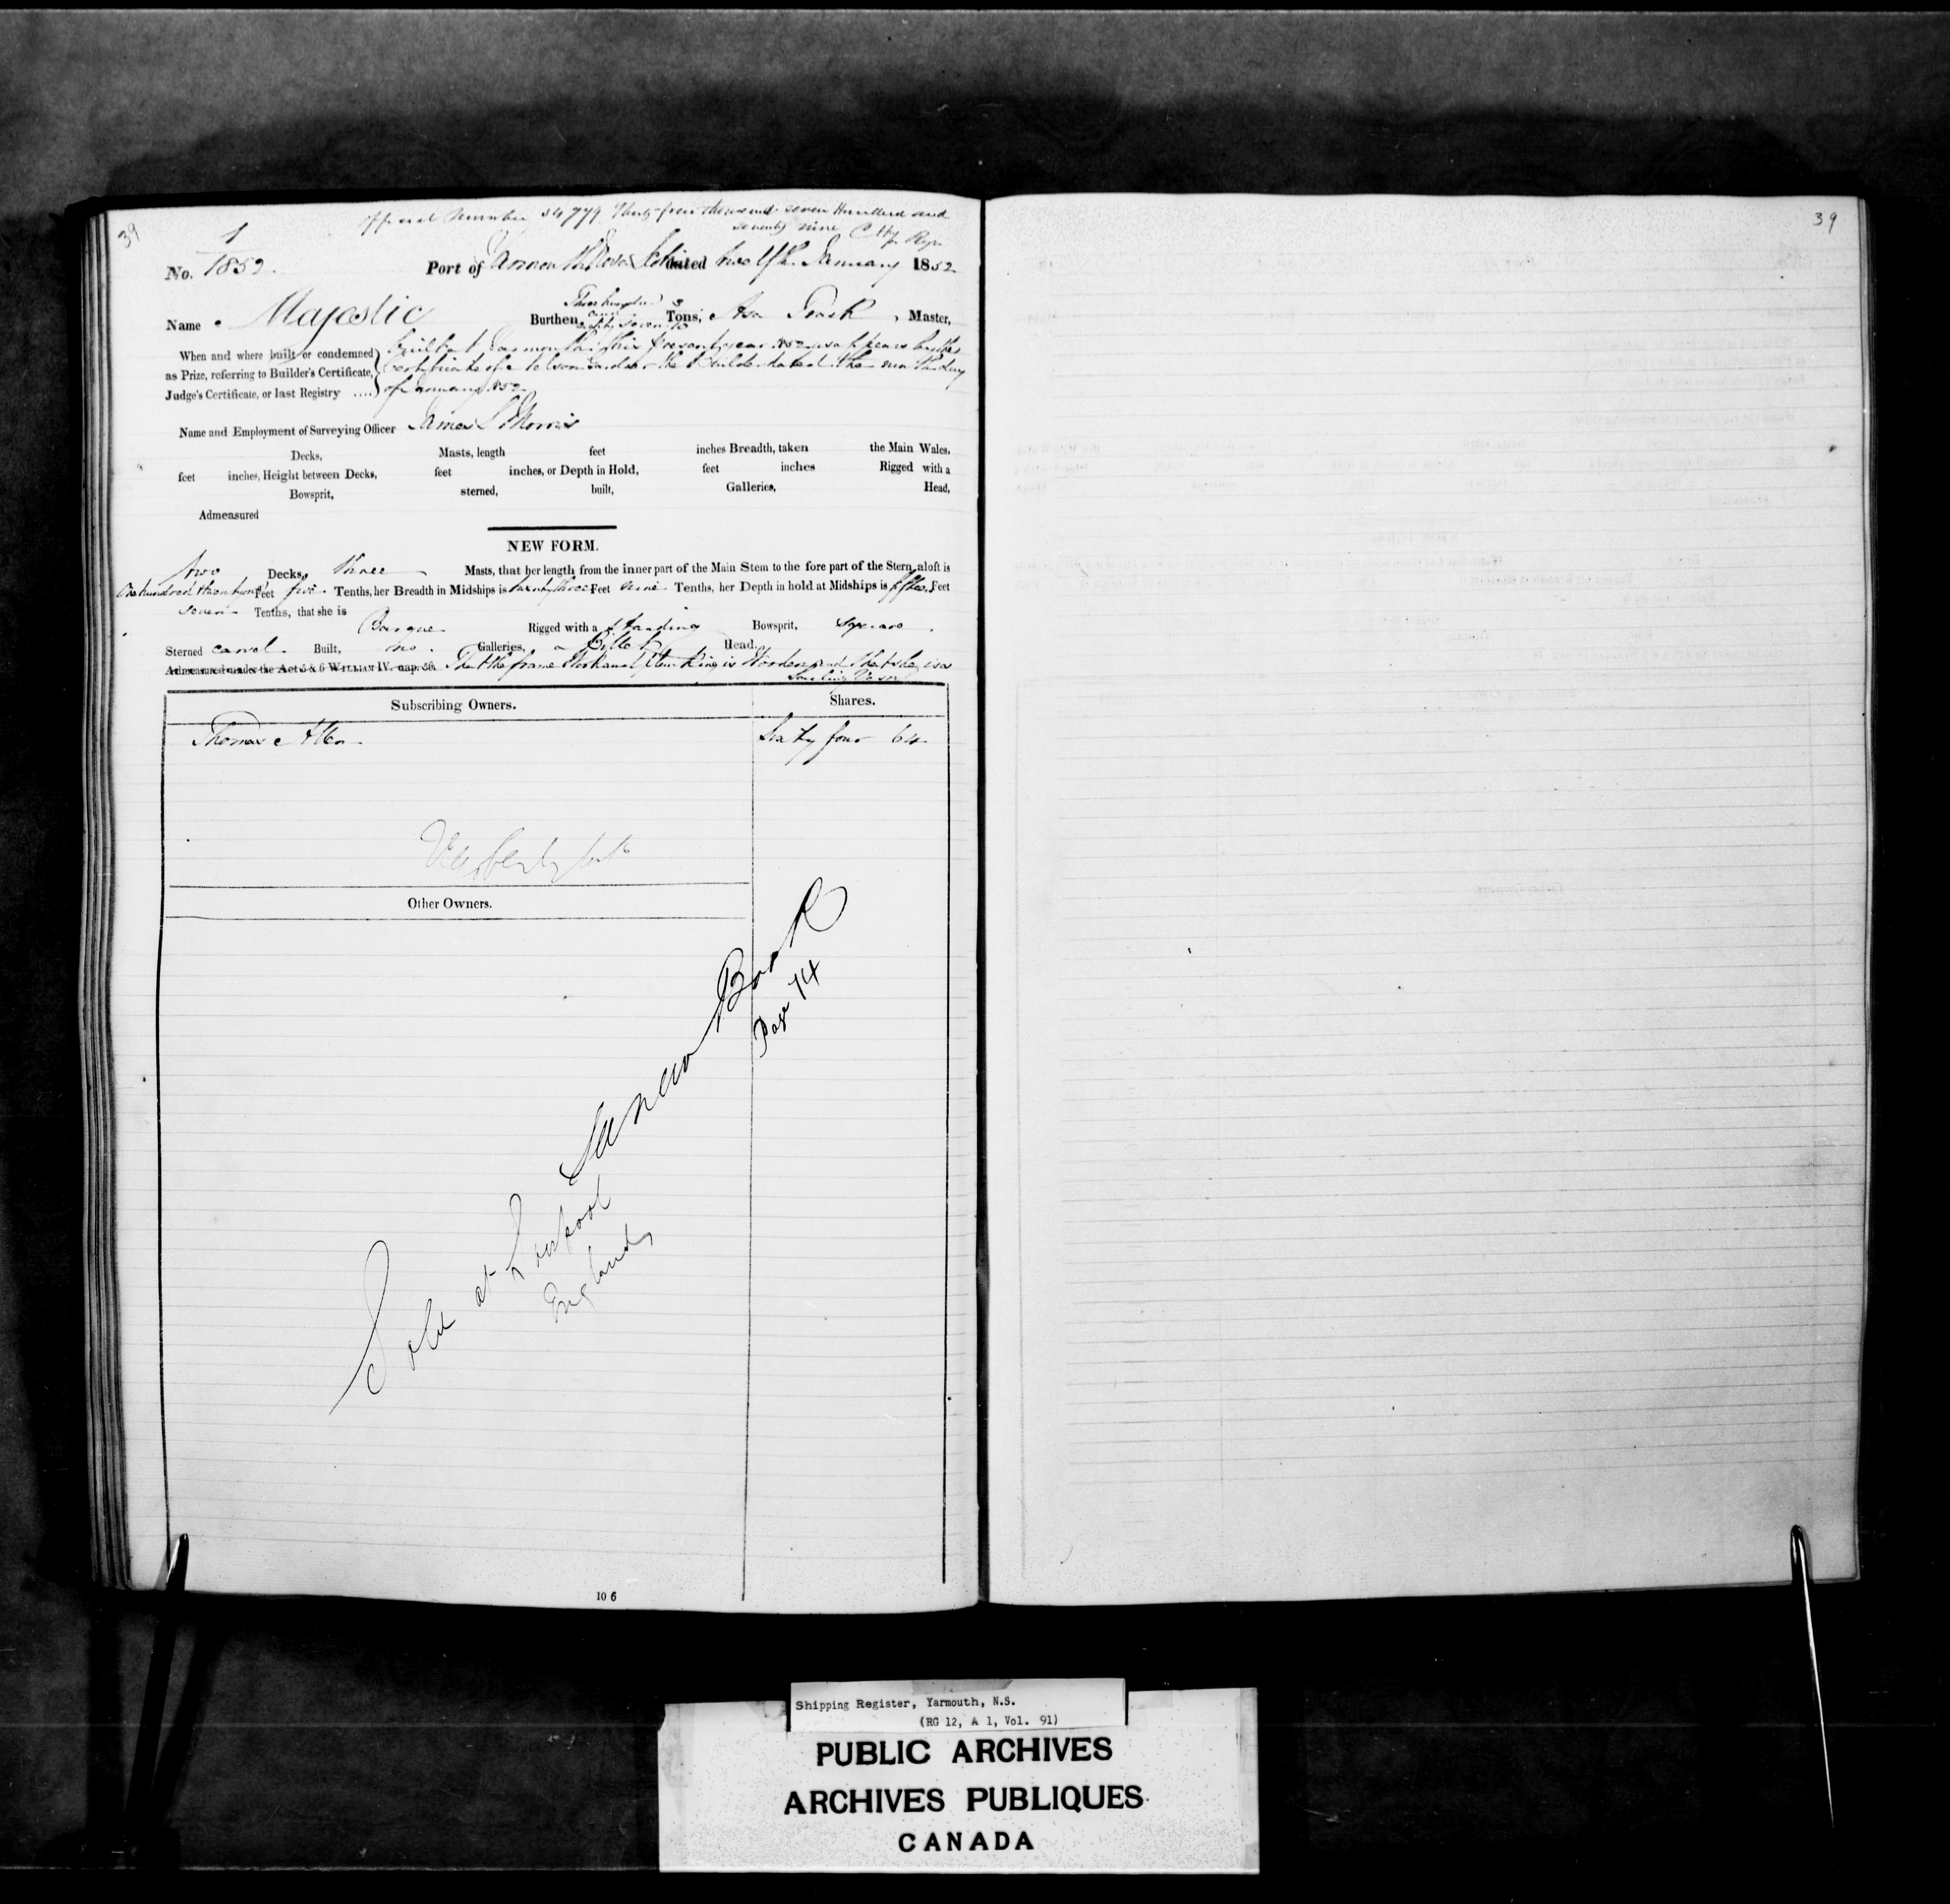 39
Official Number 34779 Thirty four thousand seven Hundred and
seventy nine
1
No. 1852. Port of Yarmouth Nova Scotia dated twelfth January 1852
Name Majestic Burthen Three hundred and seven 3/10 Tons, Asa , Master,
When and where built or condemned
as Prize, referring to Builder's Certificate,
Judge's Certificate, or last Registry ....
built at Yarmouth this present year 1852 as appears by the
Certificate of Nelson Gardner the Builder dated the ninth day
of January 1852
Name and Employment of Surveying Officer James S Morris
Decks, Masts, length feet inches Breadth, taken the Main Wales,
feet inches, Height between Decks, feet inches, or Depth in Hold, feet inches Rigged with a
Bowsprit, sterned, built, Galleries, Head,
Admeasured
NEW FORM.
two Decks, three Masts, that her length from the inner part of the Main Stem to the fore part of the Stern aloft is
One hundred twenty Feet five Tenths, her Breadth in Midships is twenty three Feet nine Tenths, her Depth in hold at Midships is fifteen Feet
seven Tenths, that she is Barque Rigged with a standing Bowsprit, square
Sterned carvel Built, no Galleries, a Billet Head.
Admeasured under the Act 5 & 6 WILLIAM IV. cap. 56. That the frame Work and Planking is Wooden and that she is a
Sailing Vessel
Subscribing Owners. Shares.
Thomas Allen Sixty four 64
Other Owners.
In new Book
Page 74
Sold at Liverpool
England
10 6
39
Shipping Register, Yarmouth, N.S.
(RG 12, A 1, Vol. 91)
PUBLIC ARCHIVES
ARCHIVES PUBLIQUES
CANADA